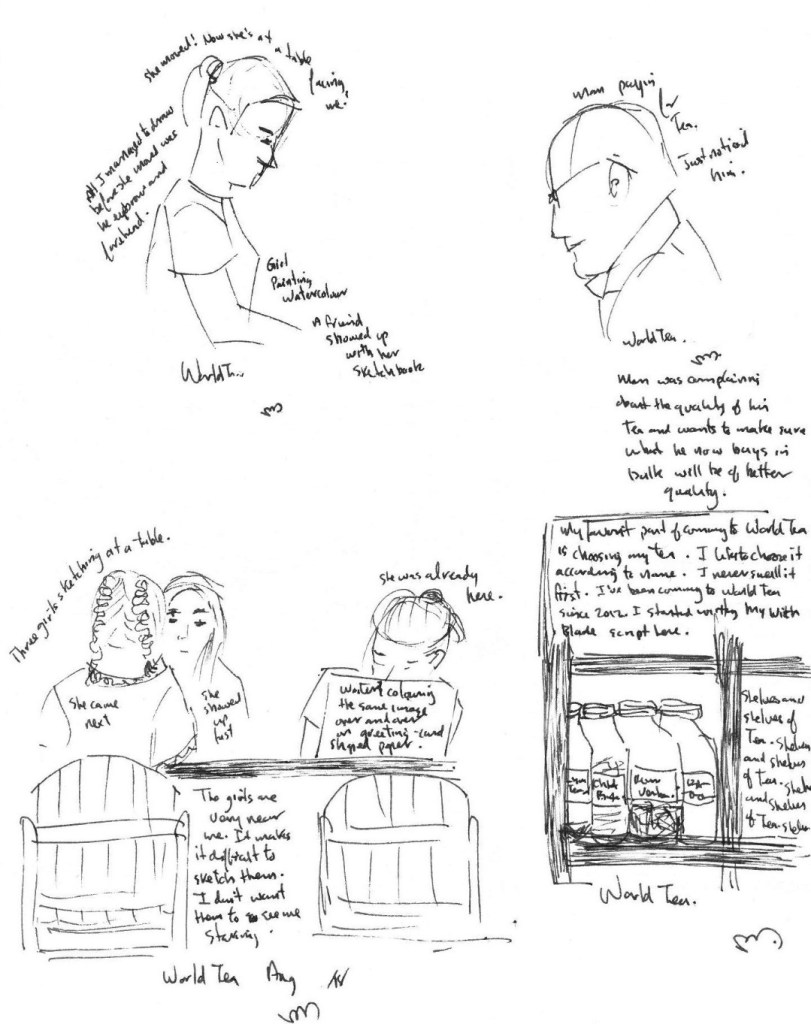 she moved! Now she's at a table
facing
me.
All I managed to draw
before she moved was
he eyebrow and
forehead.
Girl
Painting
Watercolour
A friend
showed up
with her
sketchbook
World T..
Man payin
for
Tea.
Just noticed
him.
World Tea.
Man was complaining
about the quality of his
Tea and wants to make sure
what he now buys in
bulk will be of better
quality.
Three girls sketching at a table.
she came
next
she
showed
up
last
she was already
here.
Water colouring
the same image
over and over
on greeting-card
shaped paper.
The girls are
very near
me. It makes
it difficult to
sketch them.
I don't want
them to see me
staring.
World Tea Aug
My favorist part of coming to World Tea
is choosing my tea. I like to choose it
according to name. I never smell it
first. I've been coming to World Tea
since 2012. I started writing my With
Blade script here.
Shelves and
shelves of
Tea. Shelves
and shelves
of Tea. Shelves
and shelves
of Tea. Shelves
World Tea.